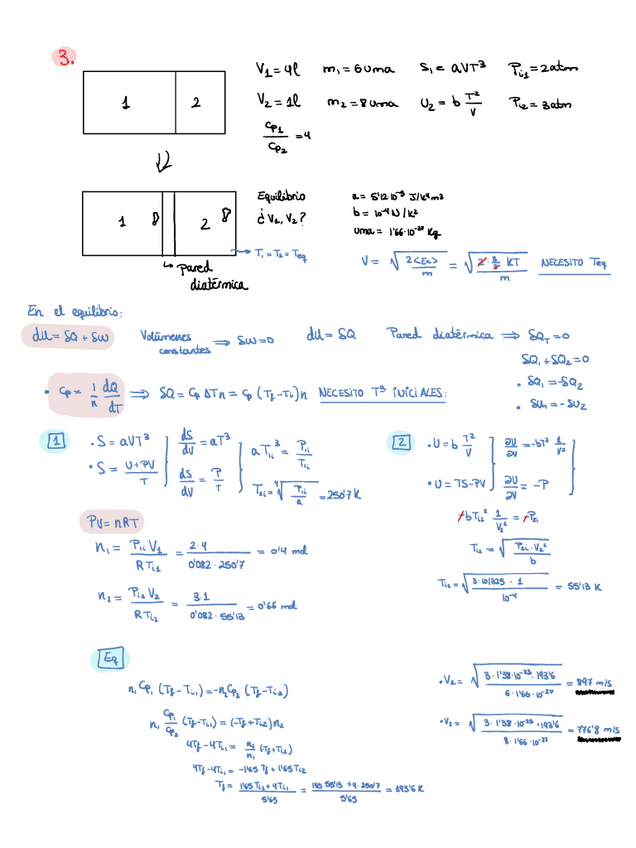 3.
1 2
V₁ = 4l m₁ = 6 uma S₁ = aVT³ Pi₁ = 2 atm
V₂ = 1l m₂ = 8 uma U₂ = b T²/V Pi₂ = 3 atm
Cp₁/Cp₂ = 4
1 2
Equilibrio
¿V₁, V₂?
a = 5'12·10⁻⁵ J/K⁴m³
b = 10⁻⁴ N/K²
uma = 1'66·10⁻²⁷ Kg
→ T₁ = T₂ = Teq
↳ Pared diatérmica
V = √(2<Ec>/m) = √(2·3/2 KT/m) NECESITO Teq
En el equilibrio:
dU = δQ + δW Volúmenes constantes ⇒ δW = 0 dU = δQ Pared diatérmica ⇒ δQT = 0
δQ₁ + δQ₂ = 0
• Cp = 1/n dQ/dT ⇒ δQ = Cp ΔT n = Cp (Tf - Ti) n NECESITO Tª INICIALES:
• δQ₁ = -δQ₂
• δU₁ = -δU₂
1
• S = aVT³
• S = U + PV/T
dS/dV = aT³
dS/dV = P/T
aTi₁³ = Pi₁/Ti₁
Ti₁ = ⁴√(Pi₁/a) = 250'7 K
2
• U = b T²/V
• U = TS - PV
∂U/∂V = -bT² 1/V²
∂U/∂V = -P
-bTi₂² 1/V₂² = -P₂i
Ti₂ = √(P₂i·V₂²/b)
Ti₂ = √(3·101325·1/10⁻⁴) = 55'13 K
PV = nRT
n₁ = Pi₁V₁/RTi₁ = 2·4/0'082·250'7 = 0'4 mol
n₂ = Pi₂V₂/RTi₂ = 3·1/0'082·55'13 = 0'66 mol
Eq
n₁Cp₁ (Tf - Ti₁) = -n₂Cp₂ (Tf - Ti₂)
n₁ Cp₁/Cp₂ (Tf - Ti₁) = (-Tf + Ti₂) n₂
4Tf - 4Ti₁ = n₂/n₁ (-Tf + Ti₂)
4Tf - 4Ti₁ = -1'65 Tf + 1'65 Ti₂
Tf = 1'65 Ti₂ + 4Ti₁/5'65 = 1'65·55'13 + 4·250'7/5'65 = 193'6 K
• V₁ = √(3·1'38·10⁻²³·193'6/6·1'66·10⁻²⁷) = 897 m/s
• V₂ = √(3·1'38·10⁻²³·193'6/8·1'66·10⁻²⁷) = 776'8 m/s